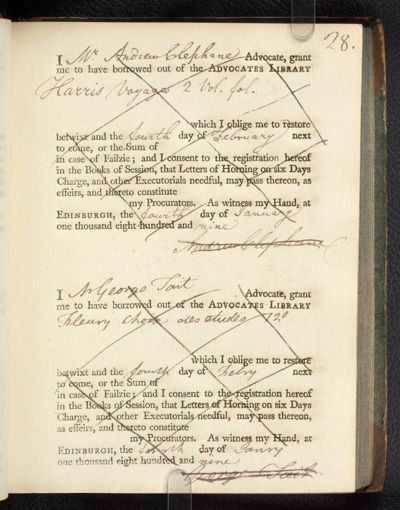 28.
I Mr. Andrew Clephane Advocate, grant
me to have borrowed out of the ADVOCATES LIBRARY
Harris Voyages 2 Vol. fol.
which I oblige me to restore
betwixt and the fourth day of February next
to come, or the Sum of
in case of Failzie; and I consent to the registration hereof
in the Books of Session, that Letters of Horning on six Days
Charge, and other Executorials needful, may pass thereon, as
effeirs, and thereto constitute
my Procurators. As witness my Hand, at
EDINBURGH, the fourth day of January
one thousand eight hundred and nine
Andrew Clephane
I Mr George Tait Advocate, grant
me to have borrowed out of the ADVOCATES LIBRARY
Fleury choix des etudes 12o
which I oblige me to restore
betwixt and the fourth day of Febry next
to come, or the Sum of
in case of Failzie; and I consent to the registration hereof
in the Books of Session, that Letters of Horning on six Days
Charge, and other Executorials needful, may pass thereon,
as effeirs, and thereto constitute
my Procurators. As witness my Hand, at
EDINBURGH, the fourth day of Janry
one thousand eight hundred and nine
George Tait